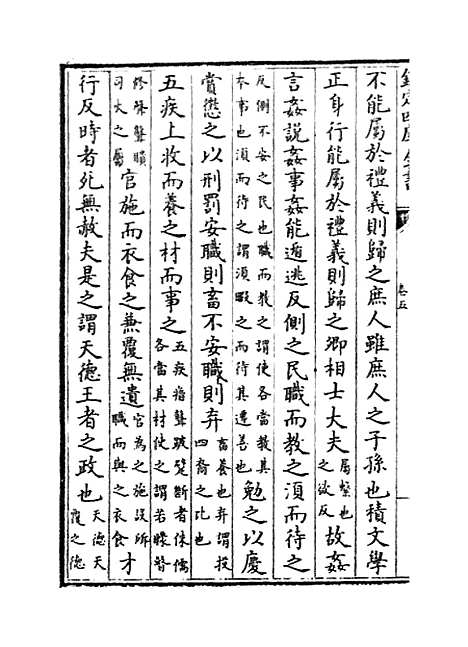 欽定四庫全書 卷五
不能屬於禮義則歸之庶人雖庶人之子孫也積文學
正身行能屬於禮義則歸之卿相士大夫屬繫也之欲反故姦
言姦說姦事姦能遁逃反側之民職而教之須而待之
反側不安之民也職而教之謂使各當教其本事也須而待之謂須暇之而待其遷善也勉之以慶
賞懲之以刑罰安職則畜不安職則弃畜養也弃謂投四裔之比也
五疾上收而養之材而事之五疾瘖聾跛躄斷者侏儒各當其材使之謂若矇瞽
修聲聾聵司火之屬官施而衣食之兼覆無遺官為之施設所職而與之衣食才
行反時者死無赦夫是之謂天德王者之政也天德天覆之德